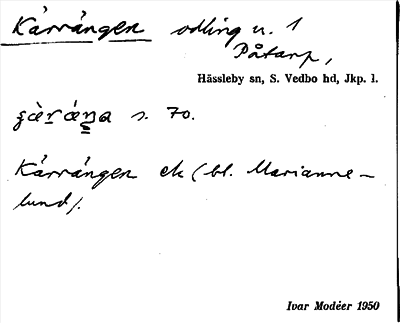 Kärrängen odling u. 1
Påtarp,
Hässleby sn, S. Vedbo hd, Jkp. l.
s. 70.
Kärrängen ek (bl. Marianne-
lund).
Ivar Modéer 1950